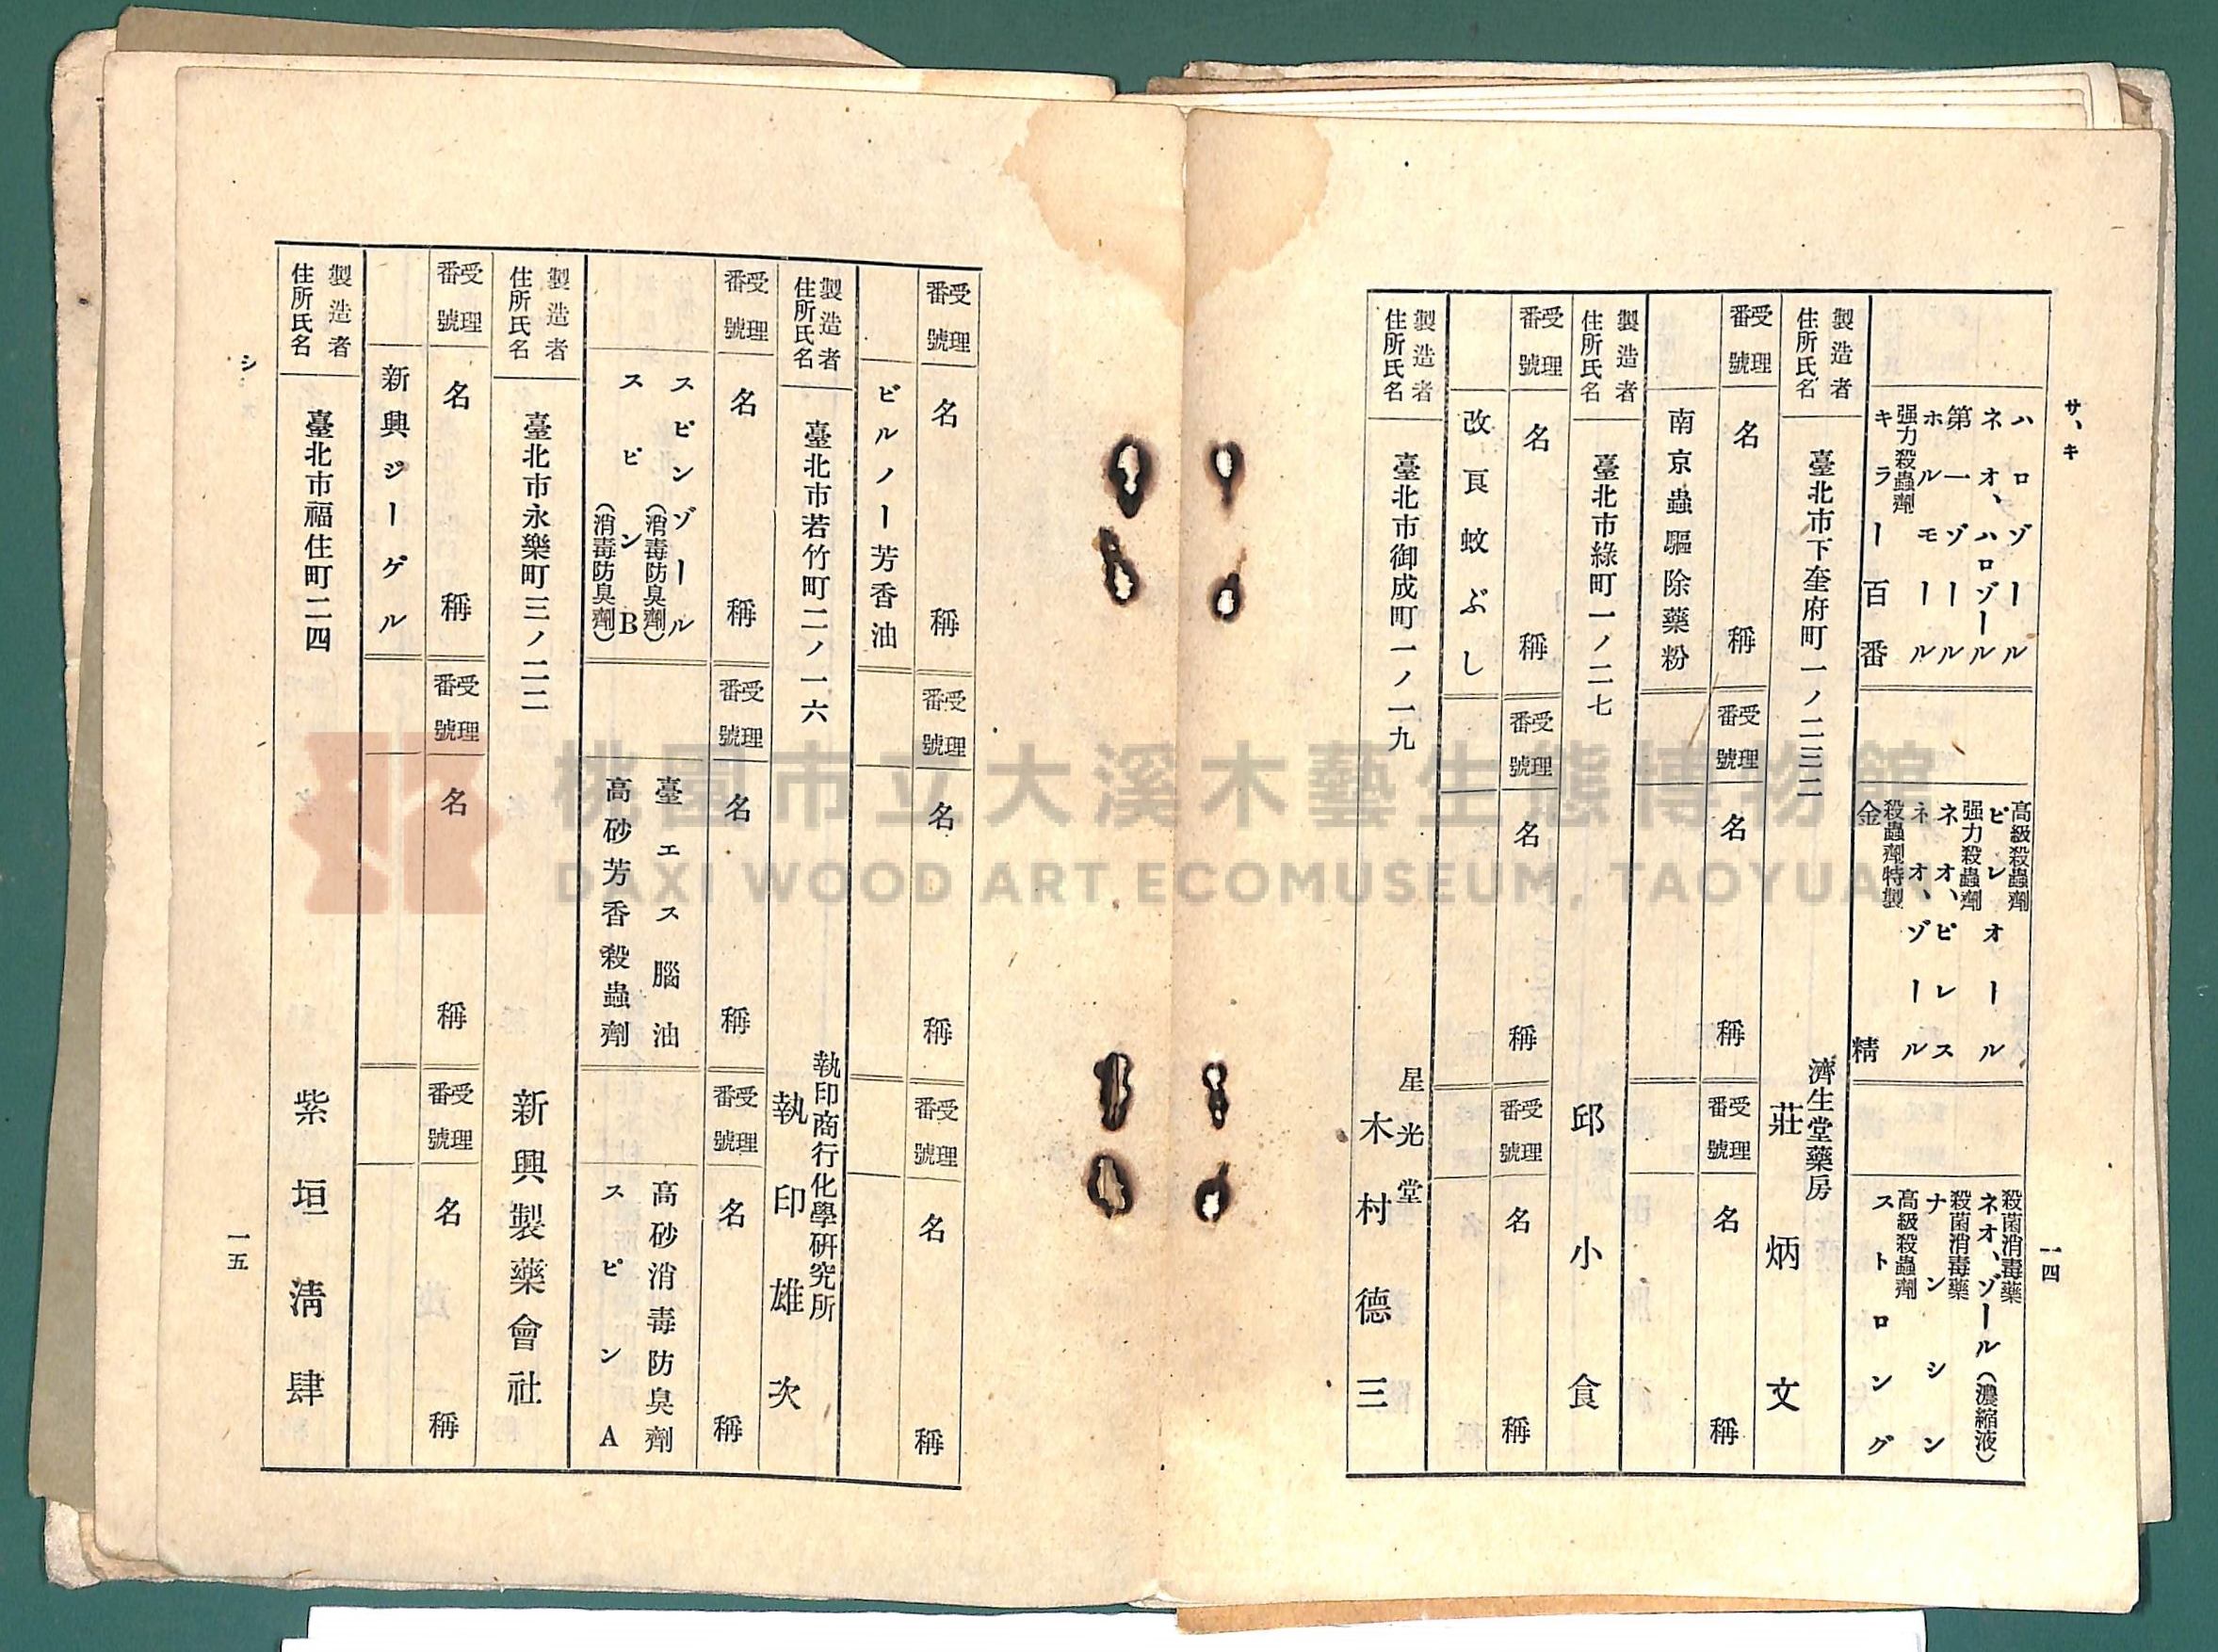 サ、キ
一四
ハロゾール
ネオ、ハロゾール
第一ゾール
ホルモール
强力殺蟲劑
キラー百番
高級殺蟲劑
ピレオール
强力殺蟲劑
ネオ、ピレス
ネオ、ゾール
殺蟲劑特製
金精
殺菌消毒藥
ネオ、ゾール(濃縮液)
殺菌消毒藥
ナンシン
高級殺蟲劑
ストロング
製造者
住所氏名
臺北市下奎府町一ノ二三二
濟生堂藥房
莊炳文
受理
番號
名稱
受理
番號
名稱
受理
番號
名稱
南京蟲驅除藥粉
製造者
住所氏名
臺北市綠町一ノ二七
邱小食
受理
番號
名稱
受理
番號
名稱
受理
番號
名稱
改良蚊ぶし
製造者
住所氏名
臺北市御成町一ノ一九
星光堂
木村德三
受理
番號
名稱
受理
番號
名稱
受理
番號
名稱
ビルノー芳香油
製造者
住所氏名
臺北市若竹町二ノ一六
執印商行化學硏究所
執印雄次
受理
番號
名稱
受理
番號
名稱
受理
番號
名稱
スピンゾール
(消毒防臭劑)
スピンB
(消毒防臭劑)
臺エス腦油
高砂芳香殺蟲劑
高砂消毒防臭劑
スピンA
製造者
住所氏名
臺北市永樂町三ノ二二
新興製藥會社
受理
番號
名稱
受理
番號
名稱
受理
番號
名稱
新興ジーゲル
製造者
住所氏名
臺北市福住町二四
紫垣淸肆
シ
一五
桃園市立大溪木藝生態博物館
DAXI WOOD ART ECOMUSEUM, TAOYUAN